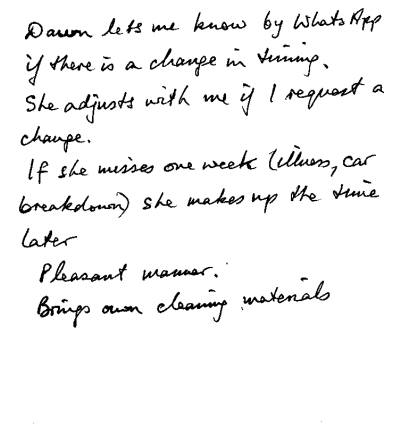 Dawn lets me know by WhatsApp
if there is a change in timing.
She adjusts with me if I request a
change.
If she misses one week (illness, car
breakdown) she makes up the time
later
Pleasant manner.
Brings own cleaning materials